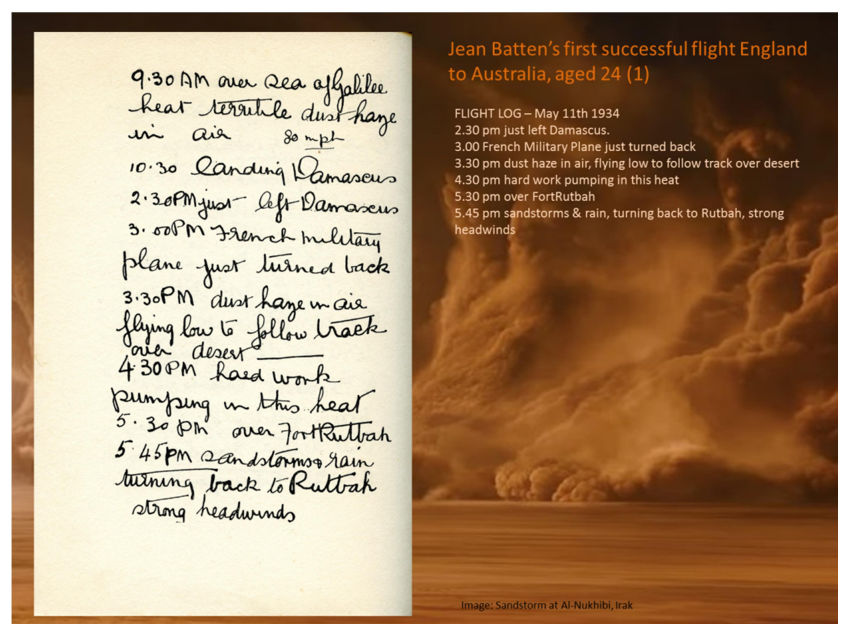 9.30 AM over sea of Galilee
heat terrible dust haze
in air 80 mph
10.30 landing Damascus
2.30PM just left Damascus
3.00PM French military
plane just turned back
3.30PM dust haze in air
flying low to follow track
over desert
4.30PM hard work
pumping in this heat
5.30 pm over Fort Rutbah
5.45pm sandstorms & rain
turning back to Rutbah
strong headwinds
Jean Batten's first successful flight England
to Australia, aged 24 (1)
FLIGHT LOG – May 11th 1934
2.30 pm just left Damascus.
3.00 French Military Plane just turned back
3.30 pm dust haze in air, flying low to follow track over desert
4.30 pm hard work pumping in this heat
5.30 pm over FortRutbah
5.45 pm sandstorms & rain, turning back to Rutbah, strong
headwinds
Image: Sandstorm at Al-Nukhibi, Irak